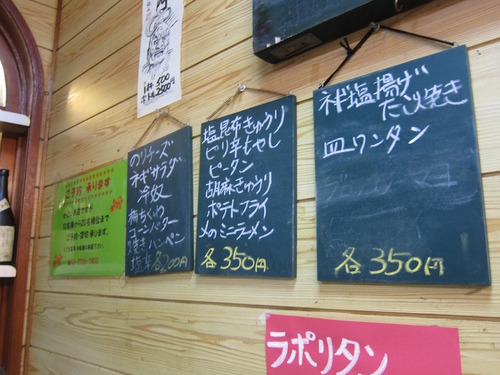 ご予約 承ります
のりチーズ
ネギサラダ
冷奴
梅ちくわ
コーンバター
焼きハンペン
塩辛
各200円
塩昆布きゅうり
ピリ辛もやし
ピータン
胡麻きゅうり
ポテトフライ
〆のミニラーメン
各350円
ネギ塩揚げ
たこ焼き
皿ワンタン
各350円
ラポリタン